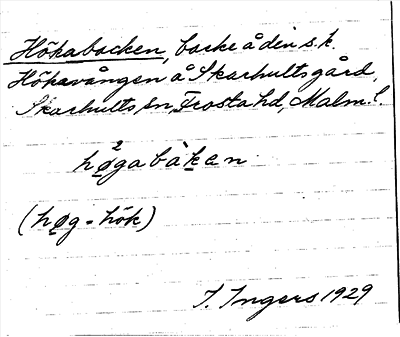 Hökabacken, backe å den s.k.
Hökavången å Skarhultsgård,
Skarhults sn, Frosta hd, Malm. l.
hø̱²gabàḵen
(hø̱g = hök)
I. Ingers 1929